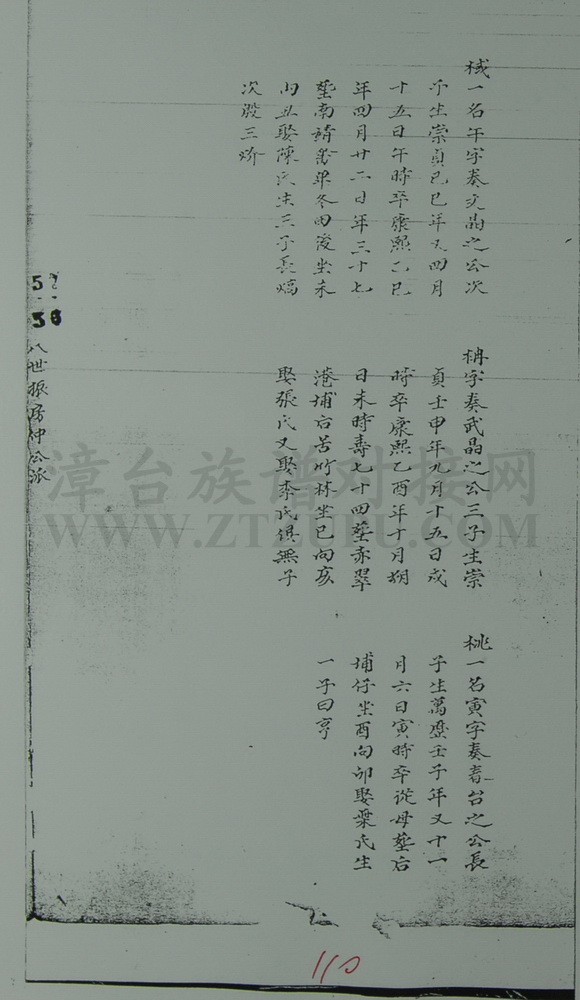 棫一名午字奏文晶之公次
子生崇貞己巳年又四月
十五日午時卒康熙乙巳
年四月廿二日年三十七
塟南靖畨畢冬田後坐未
向丑娶陳氏生三子長熇
次殷三炌
柟字奏武晶之公三子生崇
貞壬申年九月十五日戌
時卒康熙乙酉年十月朔
日未時壽七十四塟赤翠
港埔后苦竹林坐巳向亥
娶張氏又娶李氏俱無子
桃一名寅字奏春台之公長
子生萬歷壬子年又十一
月六日寅時卒從母塟后
埔仔坐酉向卯娶葉氏生
一子曰亨
八世振房仲公派
漳台族谱对接网
WWW.ZTZUPU.COM
110